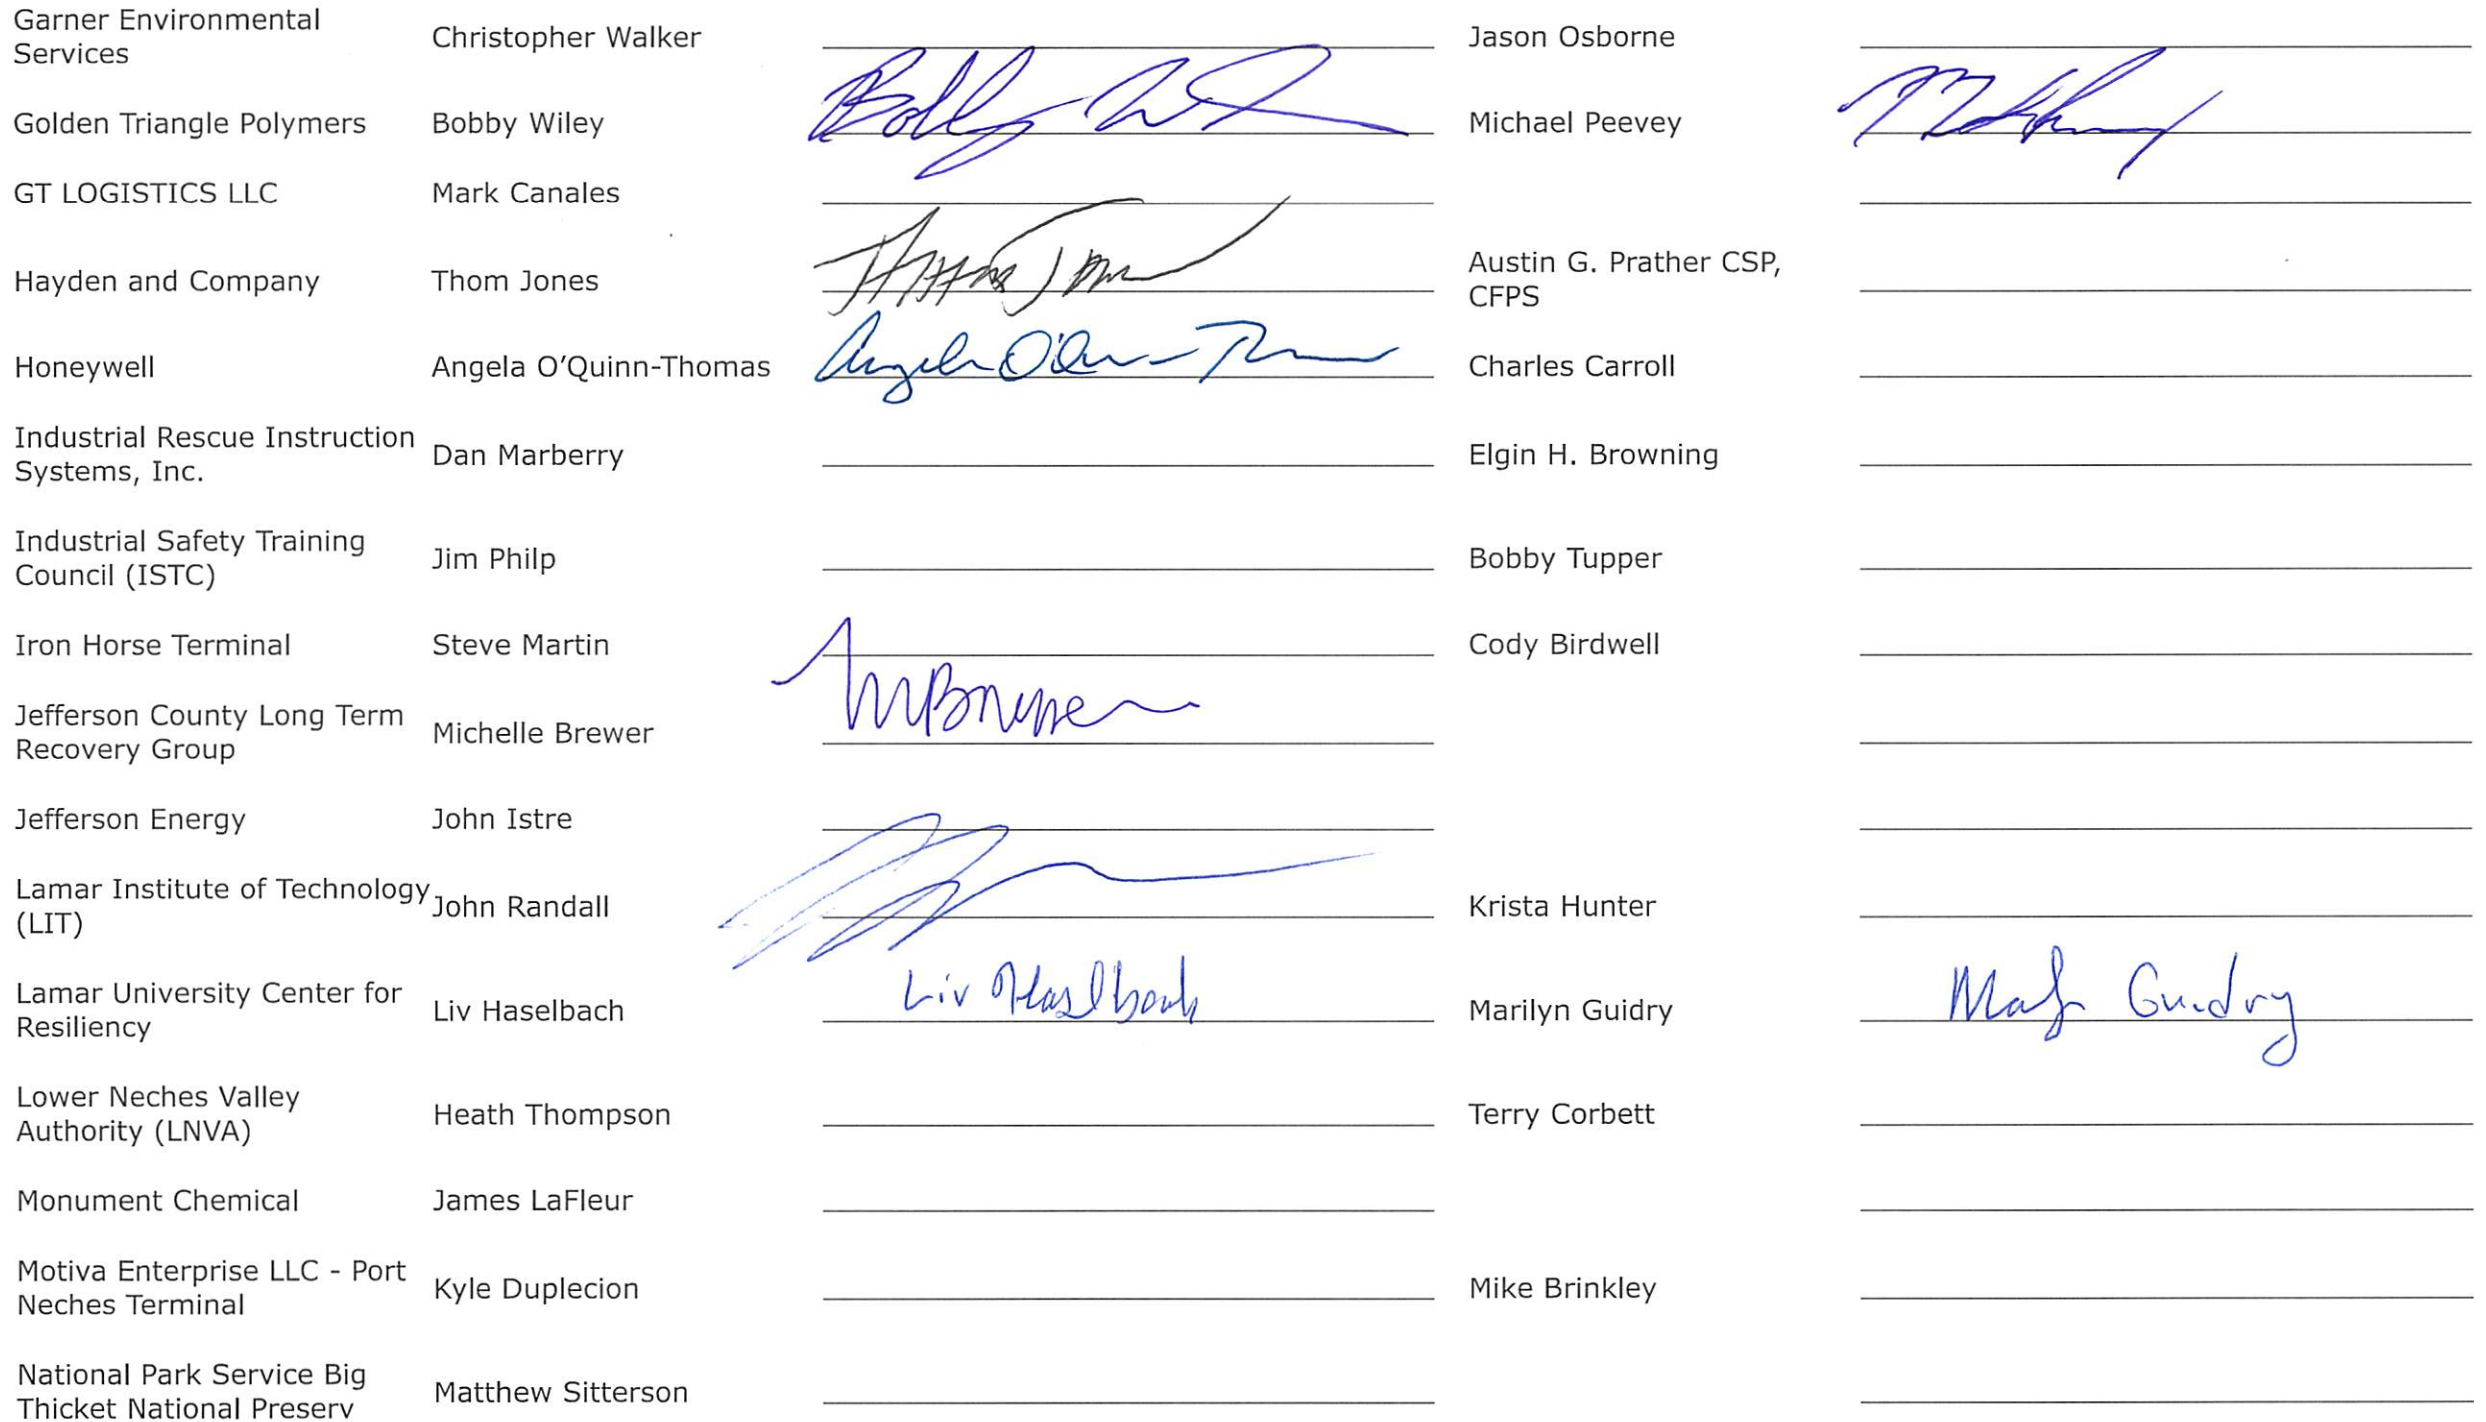 Garner Environmental
Services
Christopher Walker
Jason Osborne
Golden Triangle Polymers
Bobby Wiley
Bobby W
Michael Peevey
GT LOGISTICS LLC
Mark Canales
Hayden and Company
Thom Jones
Austin G. Prather CSP,
CFPS
Honeywell
Angela O'Quinn-Thomas
Angela O'Qu
Charles Carroll
Industrial Rescue Instruction
Systems, Inc.
Dan Marberry
Elgin H. Browning
Industrial Safety Training
Council (ISTC)
Jim Philp
Bobby Tupper
Iron Horse Terminal
Steve Martin
Cody Birdwell
Jefferson County Long Term
Recovery Group
Michelle Brewer
Jefferson Energy
John Istre
Lamar Institute of Technology
(LIT)
John Randall
Krista Hunter
Lamar University Center for
Resiliency
Liv Haselbach
Liv Haselbach
Marilyn Guidry
Guidry
Lower Neches Valley
Authority (LNVA)
Heath Thompson
Terry Corbett
Monument Chemical
James LaFleur
Motiva Enterprise LLC - Port
Neches Terminal
Kyle Duplecion
Mike Brinkley
National Park Service Big
Thicket National Preserv
Matthew Sitterson